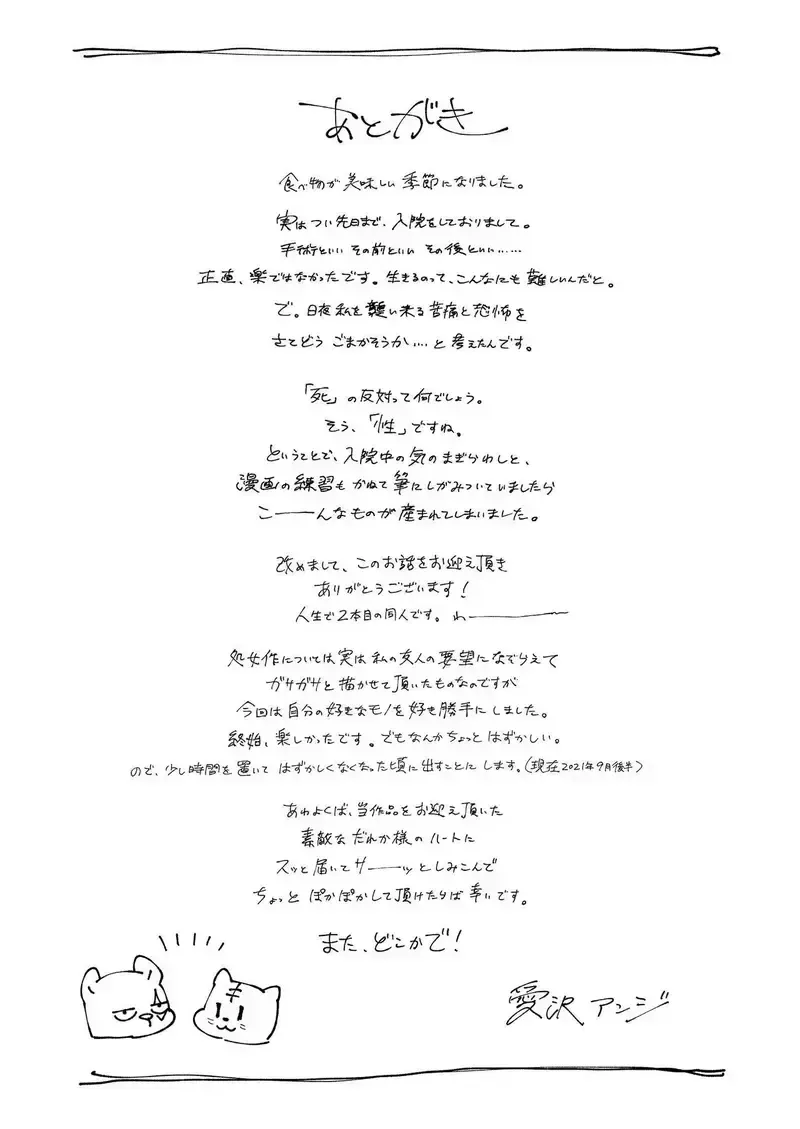 あとがき
食べ物が美味しい季節になりました。
実はつい先日まで、入院をしておりまして。
手術といい その前といい その後といい……
正直、楽ではなかったです。生きるのって、こんなにも難しいんだと。
で。日夜私を襲い来る苦痛と恐怖を
さてどう ごまかそうか…. と考えたんです。
「死」の反対って何でしょう。
そう、「性」ですね。
ということで、入院中の気のまぎらわしと、
漫画の練習も かねて筆にしがみついていましたら
こ━━んなものが産まれてしまいました。
改めまして、このお話をお迎え頂き
ありがとうございます!
人生で2本目の同人です。わ━━━
処女作については実は私の友人の要望になぞらえて
ガサガサと描かせて頂いたものなのですが
今回は自分の好きなモノを好き勝手にしました。
終始、楽しかったです。でもなんかちょっとはずかしい。
ので、少し時間を置いて はずかしくなくなった頃に出すことにします。(現在2021年9月後半)
あわよくば、当作品をお迎え頂いた
素敵な だれか様のハートに
スッと届いてサ━━ッとしみこんで
ちょっと ぽかぽかして頂けたらば幸いです。
また、どこかで!
愛沢 アンジ